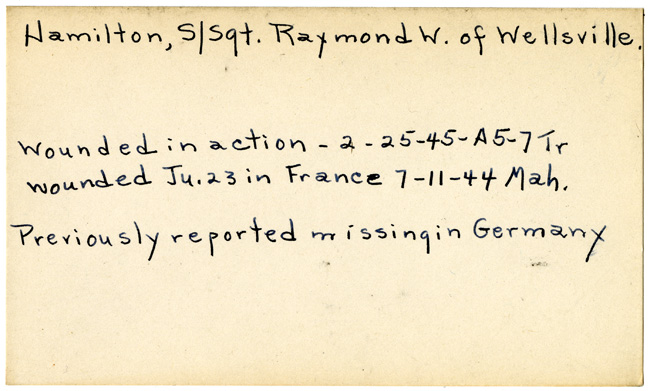 Hamilton, S/Sgt. Raymond W. of Wellsville.
wounded in action - 2-25-45-A5-7 Tr
wounded Ju.23 in France 7-11-44 Mah.
Previously reported missing in Germany